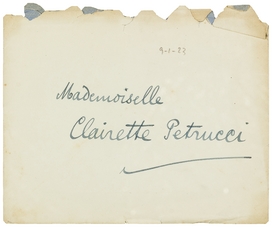 9-1-23
Mademoiselle
Clairette Petrucci